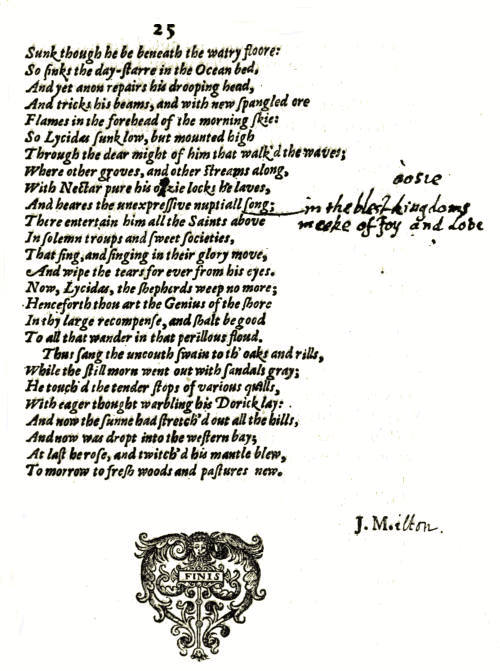 25
Sunk though he be beneath the watry floore:
So ſinks the day-ſtarre in the Ocean bed,
And yet anon repairs his drooping head,
And tricks his beams, and with new ſpangled ore
Flames in the forehead of the morning skie:
So Lycidas ſunk low, but mounted high
Through the dear might of him that walk'd the waves;
Where other groves, and other ſtreams along,
With Nectar pure his locks he laves,
And heares the unexpreſſive nuptiall ſong;
There entertain him all the Saints above
In ſolemn troups and ſweet ſocieties,
That ſing, and ſinging in their glory move,
And wipe the tears for ever from his eyes.
Now, Lycidas, the ſhepherds weep no more;
Henceforth thou art the Genius of the ſhore
In thy large recompenſe, and ſhalt be good
To all that wander in that perillous floud.
Thus ſang the uncouth ſwain to th' oaks and rills,
While the ſtill morn went out with ſandals gray;
He touch'd the tender ſtops of various quills,
With eager thought warbling his Dorick lay:
And now the ſunne had ſtretch'd out all the hills,
And now was dropt into the weſtern bay;
At laſt he roſe, and twitch'd his mantle blew,
To morrow to freſh woods and paſtures new.
oosie
in the blest kingdoms
meeke of Joy and Love
J. Milton.
FINIS